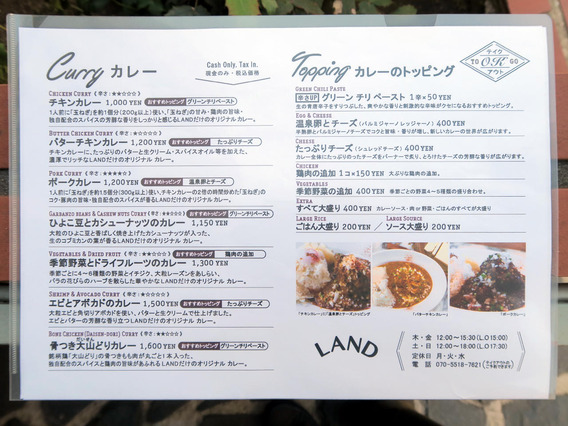 Curry カレー
Cash Only, Tax In.
現金のみ・税込価格
CHICKEN CURRY (辛さ:★★☆☆☆)
チキンカレー 1,000YEN おすすめトッピング グリーンチリペースト
1人前に「玉ねぎ」を約1個分(200g以上)使い、「玉ねぎ」の甘み・鶏肉の旨味・
独自配合のスパイスの芳醇な香りをしっかりと感じるLANDだけのオリジナル カレー。
BUTTER CHICKEN CURRY (辛さ:★☆☆☆☆)
バターチキンカレー 1,200YEN おすすめトッピング たっぷりチーズ
チキンカレーに、たっぷりのバターと生クリーム・スパイスオイル等を加えた、
濃厚でリッチなLANDだけのオリジナル カレー。
PORK CURRY (辛さ:★★★★☆)
ポークカレー 1,200YEN おすすめトッピング 温泉卵とチーズ
1人前に「玉ねぎ」を約1.5個分(300g以上)使い、チキンカレーの2倍の時間炒めた「玉ねぎ」の
コク・豚肉の旨味・独自配合のスパイスが香るLANDだけのオリジナル カレー。
GARBANZO BEANS & CASHEW NUTS CURRY (辛さ:★★☆☆☆) おすすめトッピング グリーンチリペースト
ひよこ豆とカシューナッツのカレー 1,150YEN
大粒のひよこ豆と香ばしく焼き上げたカシューナッツが入った、
生のコブミカンの葉が香るLANDだけのオリジナル カレー。
VEGETABLES & DRIED FRUIT (辛さ:★☆☆☆☆) おすすめトッピング 鶏肉の追加
季節野菜とドライフルーツのカレー 1,300YEN
季節ごとに4〜6種類の野菜とイチジク、大粒レーズンをあしらい、
バラの花びらのハーブを散らした華やかなLANDだけのオリジナル カレー。
SHRIMP & AVOCADO CURRY (辛さ:★☆☆☆☆)
エビとアボカドのカレー 1,500YEN おすすめトッピング たっぷりチーズ
大粒エビと角切りアボカドを使い、バターと生クリームで仕上げました。
エビとバターの芳醇な香り立つLANDだけのオリジナル カレー。
BONE CHICKEN (DAISEN-DORI) CURRY (辛さ:★★☆☆☆)
だいせん
骨つき大山どりカレー 1,600YEN おすすめトッピング グリーンチリペースト
銘柄鶏「大山どり」の骨つきもも肉が丸ごと1本入った、
独自配合のスパイスと鶏肉の旨味があふれるLANDだけのオリジナル カレー。
Topping カレーのトッピング
テイク
TO O.K GO
アウト
GREEN CHILI PASTE
辛さUP グリーン チリ ペースト 1辛×50YEN
生の青唐辛子をすりつぶした、爽やかな香りと刺激的な辛味がクセになるおすすめトッピング。
EGG & CHEESE
温泉卵とチーズ (パルミジャーノ レッジャーノ) 400YEN
半熟卵とパルミジャーノチーズでコクと旨味・香りが増し、新しいカレーの世界が広がります。
CHEESE
たっぷりチーズ (シュレッドチーズ) 400YEN
カレー全体にたっぷりのったチーズをバーナーで炙り、とろけたチーズの芳醇な香りが広がります。
CHICKEN
鶏肉の追加 1コ×150YEN 大ぶりな鶏肉の追加。
VEGETABLES
季節野菜の追加 400YEN 季節ごとの野菜4〜6種類の盛り合わせ。
EXTRA
すべて大盛り 400YEN カレーソース・肉 or 野菜・ごはんのすべてが大盛り
LARGE RICE LARGE SOURCE
ごはん大盛り 200YEN / ソース大盛り 200YEN
「チキンカレー」に「温泉卵とチーズ」トッピング
「バターチキンカレー」
「ポークカレー」
LAND
木・金 12:00〜15:30(L.O 15:00)
土・日 12:00〜18:00(L.O 17:30)
定休日 月・火・水
電話 070-5518-7621 (テイクアウトのご予約できます)